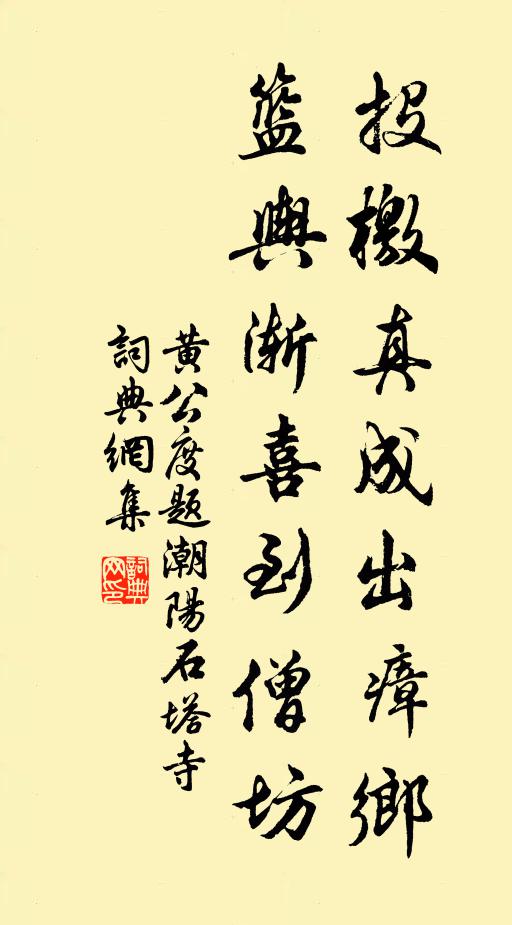 投檄真成出瘴鄉
籃輿漸喜到僧坊
黃公度題潮陽石塔寺
詞典網集
詞典網印